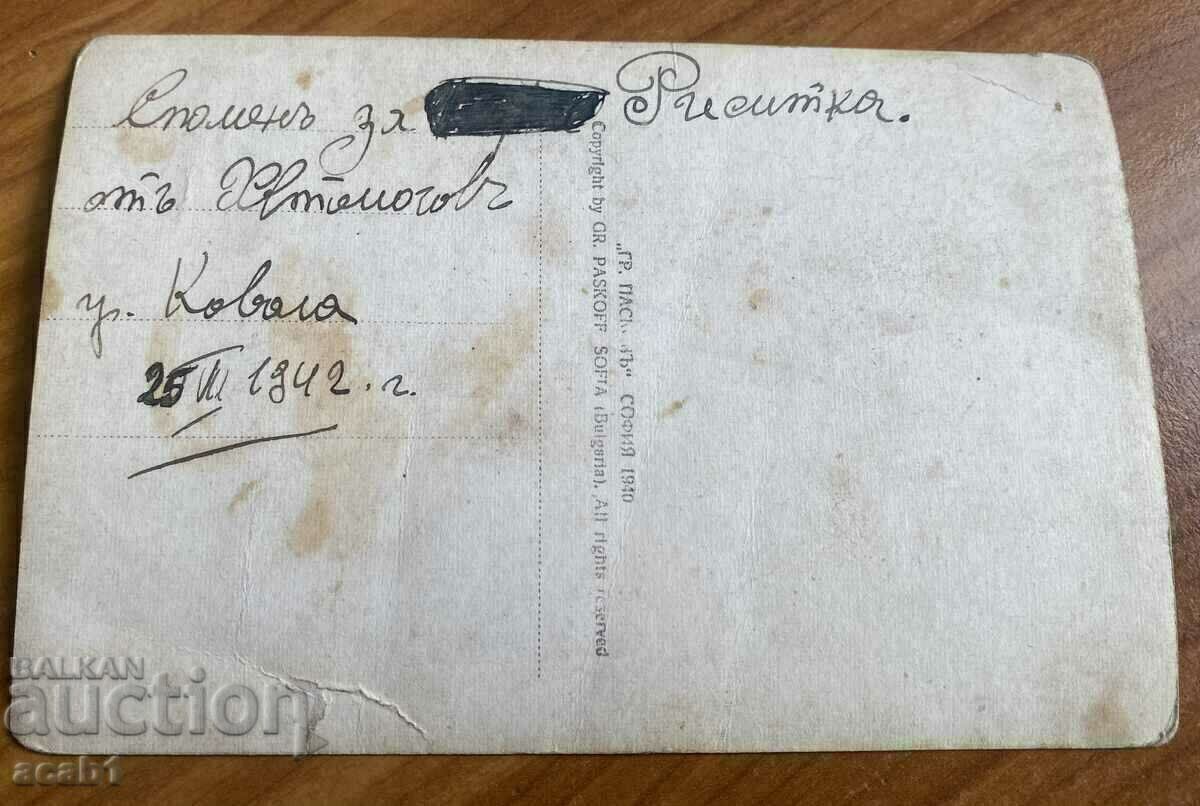 Споменъ за Риситка.
отъ
гр. Кавала
25 III 1942 г.
„ГР. ПАСКОВЪ“ СОФИЯ 1940
Copyright by GR. PASKOFF SOFIA (Bulgaria). All rights reserved
BALKAN
auction
acab1